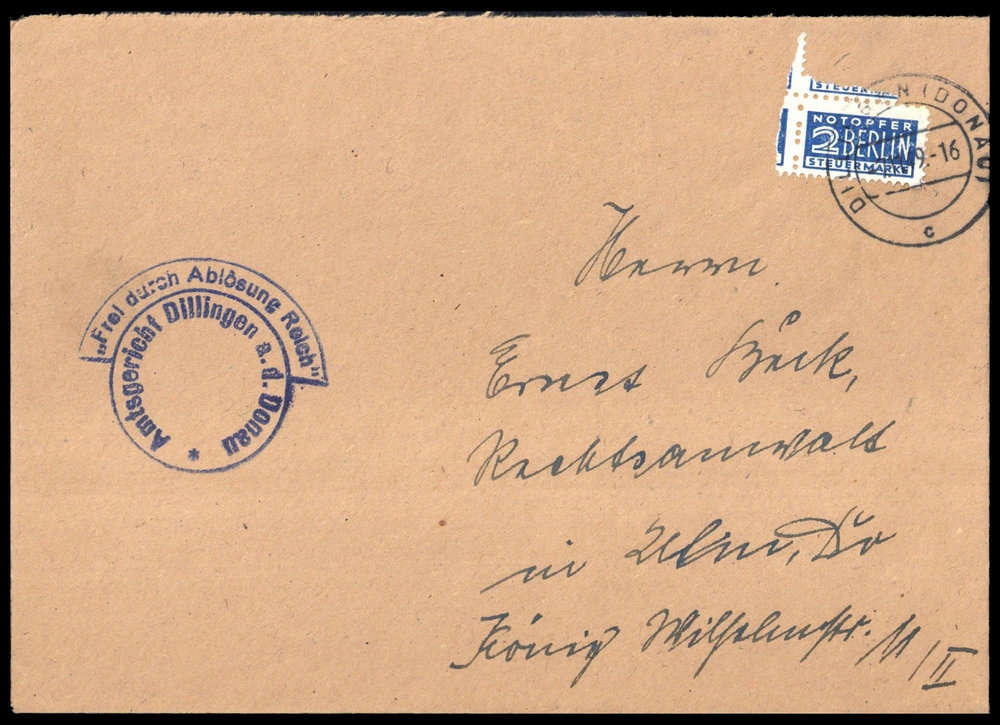 STEUERMARKE
NOTOPFER
2 BERLIN
STEUERMARKE
DILLINGEN (DONAU)
9.-16
c
„Frei durch Ablösung Reich“
Amtsgericht Dillingen a. d. Donau
*
Herrn
Ernst Böck,
Rechtsanwalt
in Ulm, Do
König Wilhelmstr. 11/II